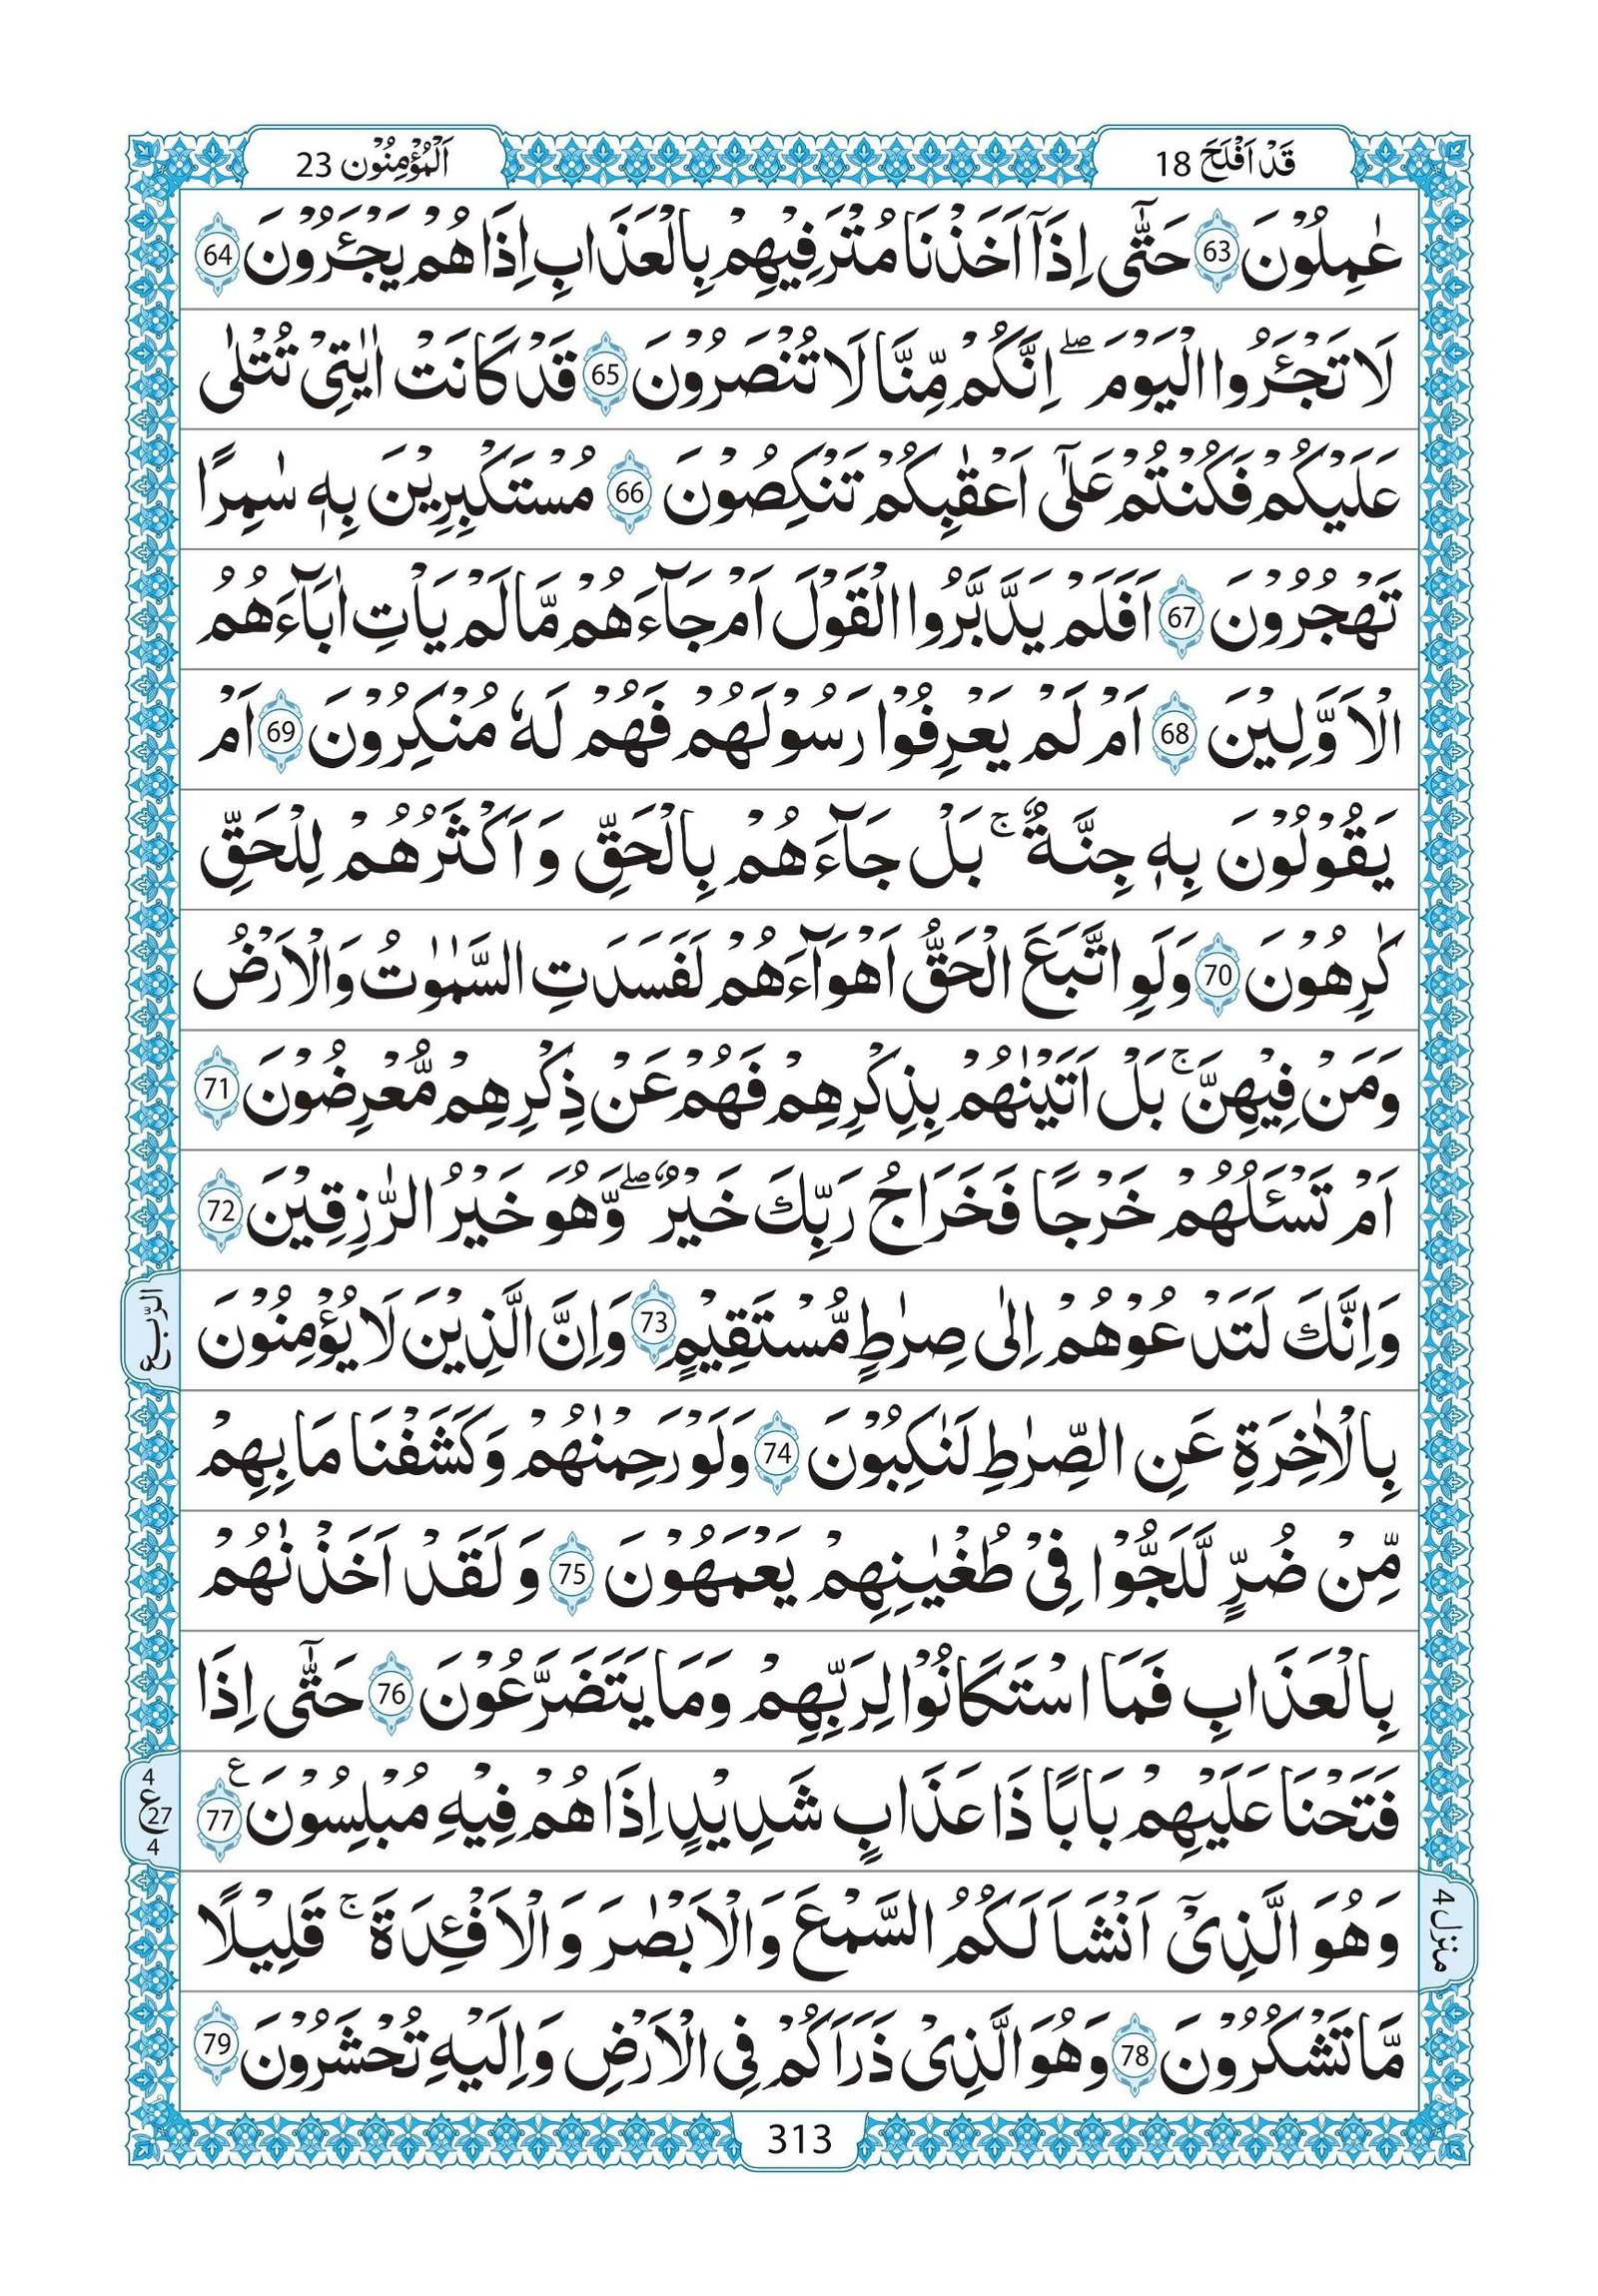 قَدۡ اَفۡلَحَ 18
اَلۡمُؤۡمِنُوۡن 23
عٰمِلُوۡنَ 63 حَتّٰٓى اِذَاۤ اَخَذۡنَا مُتۡرَفِيۡهِمۡ بِالۡعَذَابِ اِذَا هُمۡ يَجۡـَٔرُوۡنَ 64
لَا تَجۡـَٔرُوا الۡيَوۡمَ ۖ اِنَّكُمۡ مِّنَّا لَا تُنۡصَرُوۡنَ 65 قَدۡ كَانَتۡ اٰيٰتِىۡ تُتۡلٰى
عَلَيۡكُمۡ فَكُنۡتُمۡ عَلٰٓى اَعۡقٰبِكُمۡ تَنۡكِصُوۡنَ 66 مُسۡتَكۡبِرِيۡنَ بِهٖ سٰمِرًا
تَهۡجُرُوۡنَ 67 اَفَلَمۡ يَدَّبَّرُوا الۡقَوۡلَ اَمۡ جَآءَهُمۡ مَّا لَمۡ يَاۡتِ اٰبَآءَهُمُ
الۡاَوَّلِيۡنَ 68 اَمۡ لَمۡ يَعۡرِفُوۡا رَسُوۡلَهُمۡ فَهُمۡ لَهٗ مُنۡكِرُوۡنَ 69 اَمۡ
يَقُوۡلُوۡنَ بِهٖ جِنَّةٌ ۚ بَلۡ جَآءَهُمۡ بِالۡحَقِّ وَاَكۡثَرُهُمۡ لِلۡحَقِّ
كٰرِهُوۡنَ 70 وَلَوِ اتَّبَعَ الۡحَقُّ اَهۡوَآءَهُمۡ لَفَسَدَتِ السَّمٰوٰتُ وَالۡاَرۡضُ
وَمَنۡ فِيۡهِنَّ ۚ بَلۡ اَتَيۡنٰهُمۡ بِذِكۡرِهِمۡ فَهُمۡ عَنۡ ذِكۡرِهِمۡ مُّعۡرِضُوۡنَ 71
اَمۡ تَسۡـَٔلُهُمۡ خَرۡجًا فَخَرَاجُ رَبِّكَ خَيۡرٌ ۖ وَّهُوَ خَيۡرُ الرّٰزِقِيۡنَ 72
وَاِنَّكَ لَتَدۡعُوۡهُمۡ اِلٰى صِرٰطٍ مُّسۡتَقِيۡمٍ 73 وَاِنَّ الَّذِيۡنَ لَا يُؤۡمِنُوۡنَ
الرّبع
بِالۡاٰخِرَةِ عَنِ الصِّرٰطِ لَنٰكِبُوۡنَ 74 وَلَوۡ رَحِمۡنٰهُمۡ وَكَشَفۡنَا مَا بِهِمۡ
مِّنۡ ضُرٍّ لَّلَجُّوۡا فِىۡ طُغۡيٰنِهِمۡ يَعۡمَهُوۡنَ 75 وَلَقَدۡ اَخَذۡنٰهُمۡ
بِالۡعَذَابِ فَمَا اسۡتَكَانُوۡا لِرَبِّهِمۡ وَمَا يَتَضَرَّعُوۡنَ 76 حَتّٰٓى اِذَا
فَتَحۡنَا عَلَيۡهِمۡ بَابًا ذَا عَذَابٍ شَدِيۡدٍ اِذَا هُمۡ فِيۡهِ مُبۡلِسُوۡنَ ع 77
4
ع 27
4
وَهُوَ الَّذِىۡۤ اَنۡشَاَ لَكُمُ السَّمۡعَ وَالۡاَبۡصٰرَ وَالۡاَفۡـِٕدَةَ ۚ قَلِيۡلًا
منزل 4
مَّا تَشۡكُرُوۡنَ 78 وَهُوَ الَّذِىۡ ذَرَاَكُمۡ فِى الۡاَرۡضِ وَاِلَيۡهِ تُحۡشَرُوۡنَ 79
313